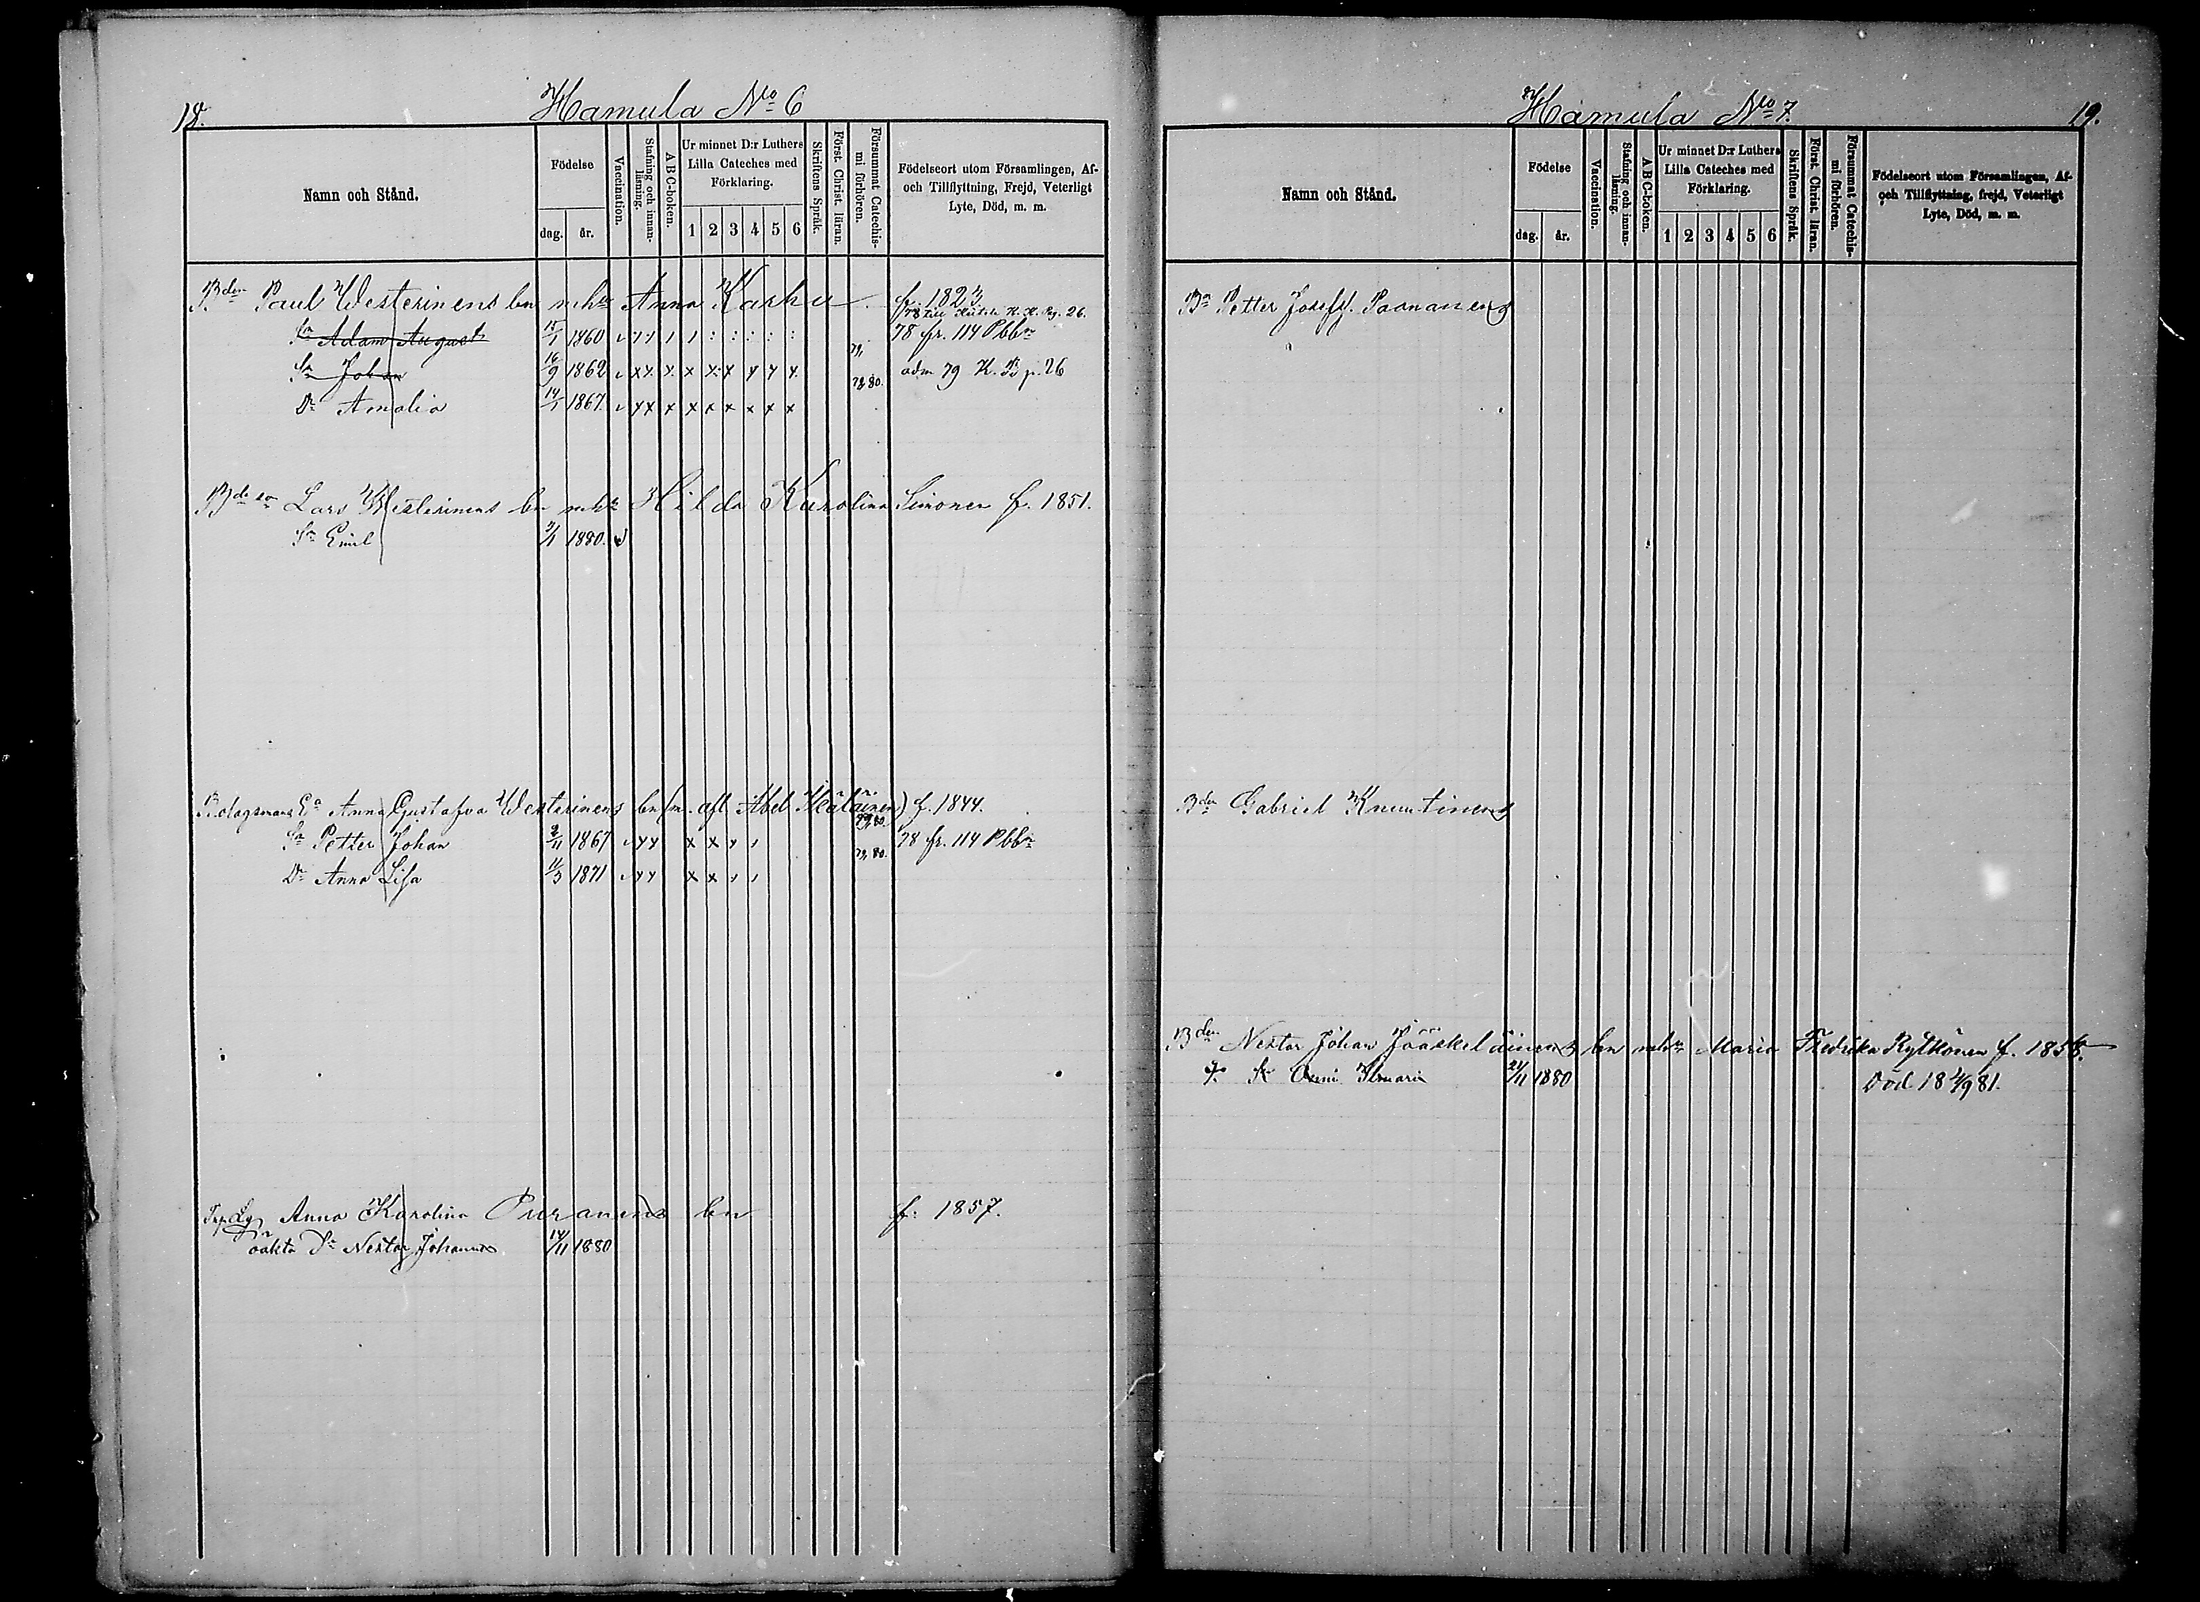 18.
Hamula No 6
Namn och Stånd.
Födelse
dag. år.
Vaccination.
Stafning och innan-läsning.
ABC-boken.
Ur minnet D:r Luthers Lilla Cateches med Förklaring.
1 2 3 4 5 6
Skriftens Språk.
Först. Christ. läran.
Försummat Catechismi förhören.
Födelseort utom Församlingen, Af- och Tillflyttning, Frejd, Veterligt Lyte, Död, m. m.
Bden Paul Westerinens bn mhu Anna Karhu f. 1823
Sn Adam August 15/1 1860 78 fr. 114 Pbbn
Sn Johan 16/9 1862 79, adm 79 K. B p. 26
Dr Amalia 14/1 1867 79, 80.
Bdeson Lars Westerinens bn mhu Hilda Karolina Simonen f. 1851.
Sn Emil 2/1 1880.
Bolagsmans Ea Anna Gustafva Westerinens bn (m. afl. Abel Käläinen) f. 1844.
Sn Petter Johan 2/11 1867 79, 80. 78 fr. 114 Pbbn
Dr Anna Lisa 11/3 1871 79, 80.
Anna Karolina Puranens bn f. 1857.
oäkta Sn Nestor Johannes 14/11 1880
Hamula No 7.
19.
Namn och Stånd.
Födelse
dag. år.
Vaccination.
Stafning och innan-läsning.
ABC-boken.
Ur minnet D:r Luthers Lilla Cateches med Förklaring.
1 2 3 4 5 6
Skriftens Språk.
Först. Christ. läran.
Försummat Catechismi förhören.
Födelseort utom Församlingen, Af- och Tillflyttning, frejd, Veterligt Lyte, Död, m. m.
Bn Petter Josefs. Paananens
Bden Gabriel Knuutinens
Bden Nestor Johan Jääskeläinens bn mhu Maria Fredrika Kylkönen f. 1858.
Sn Onni Ilmari 21/11 1880 Död 18 2/9 81.